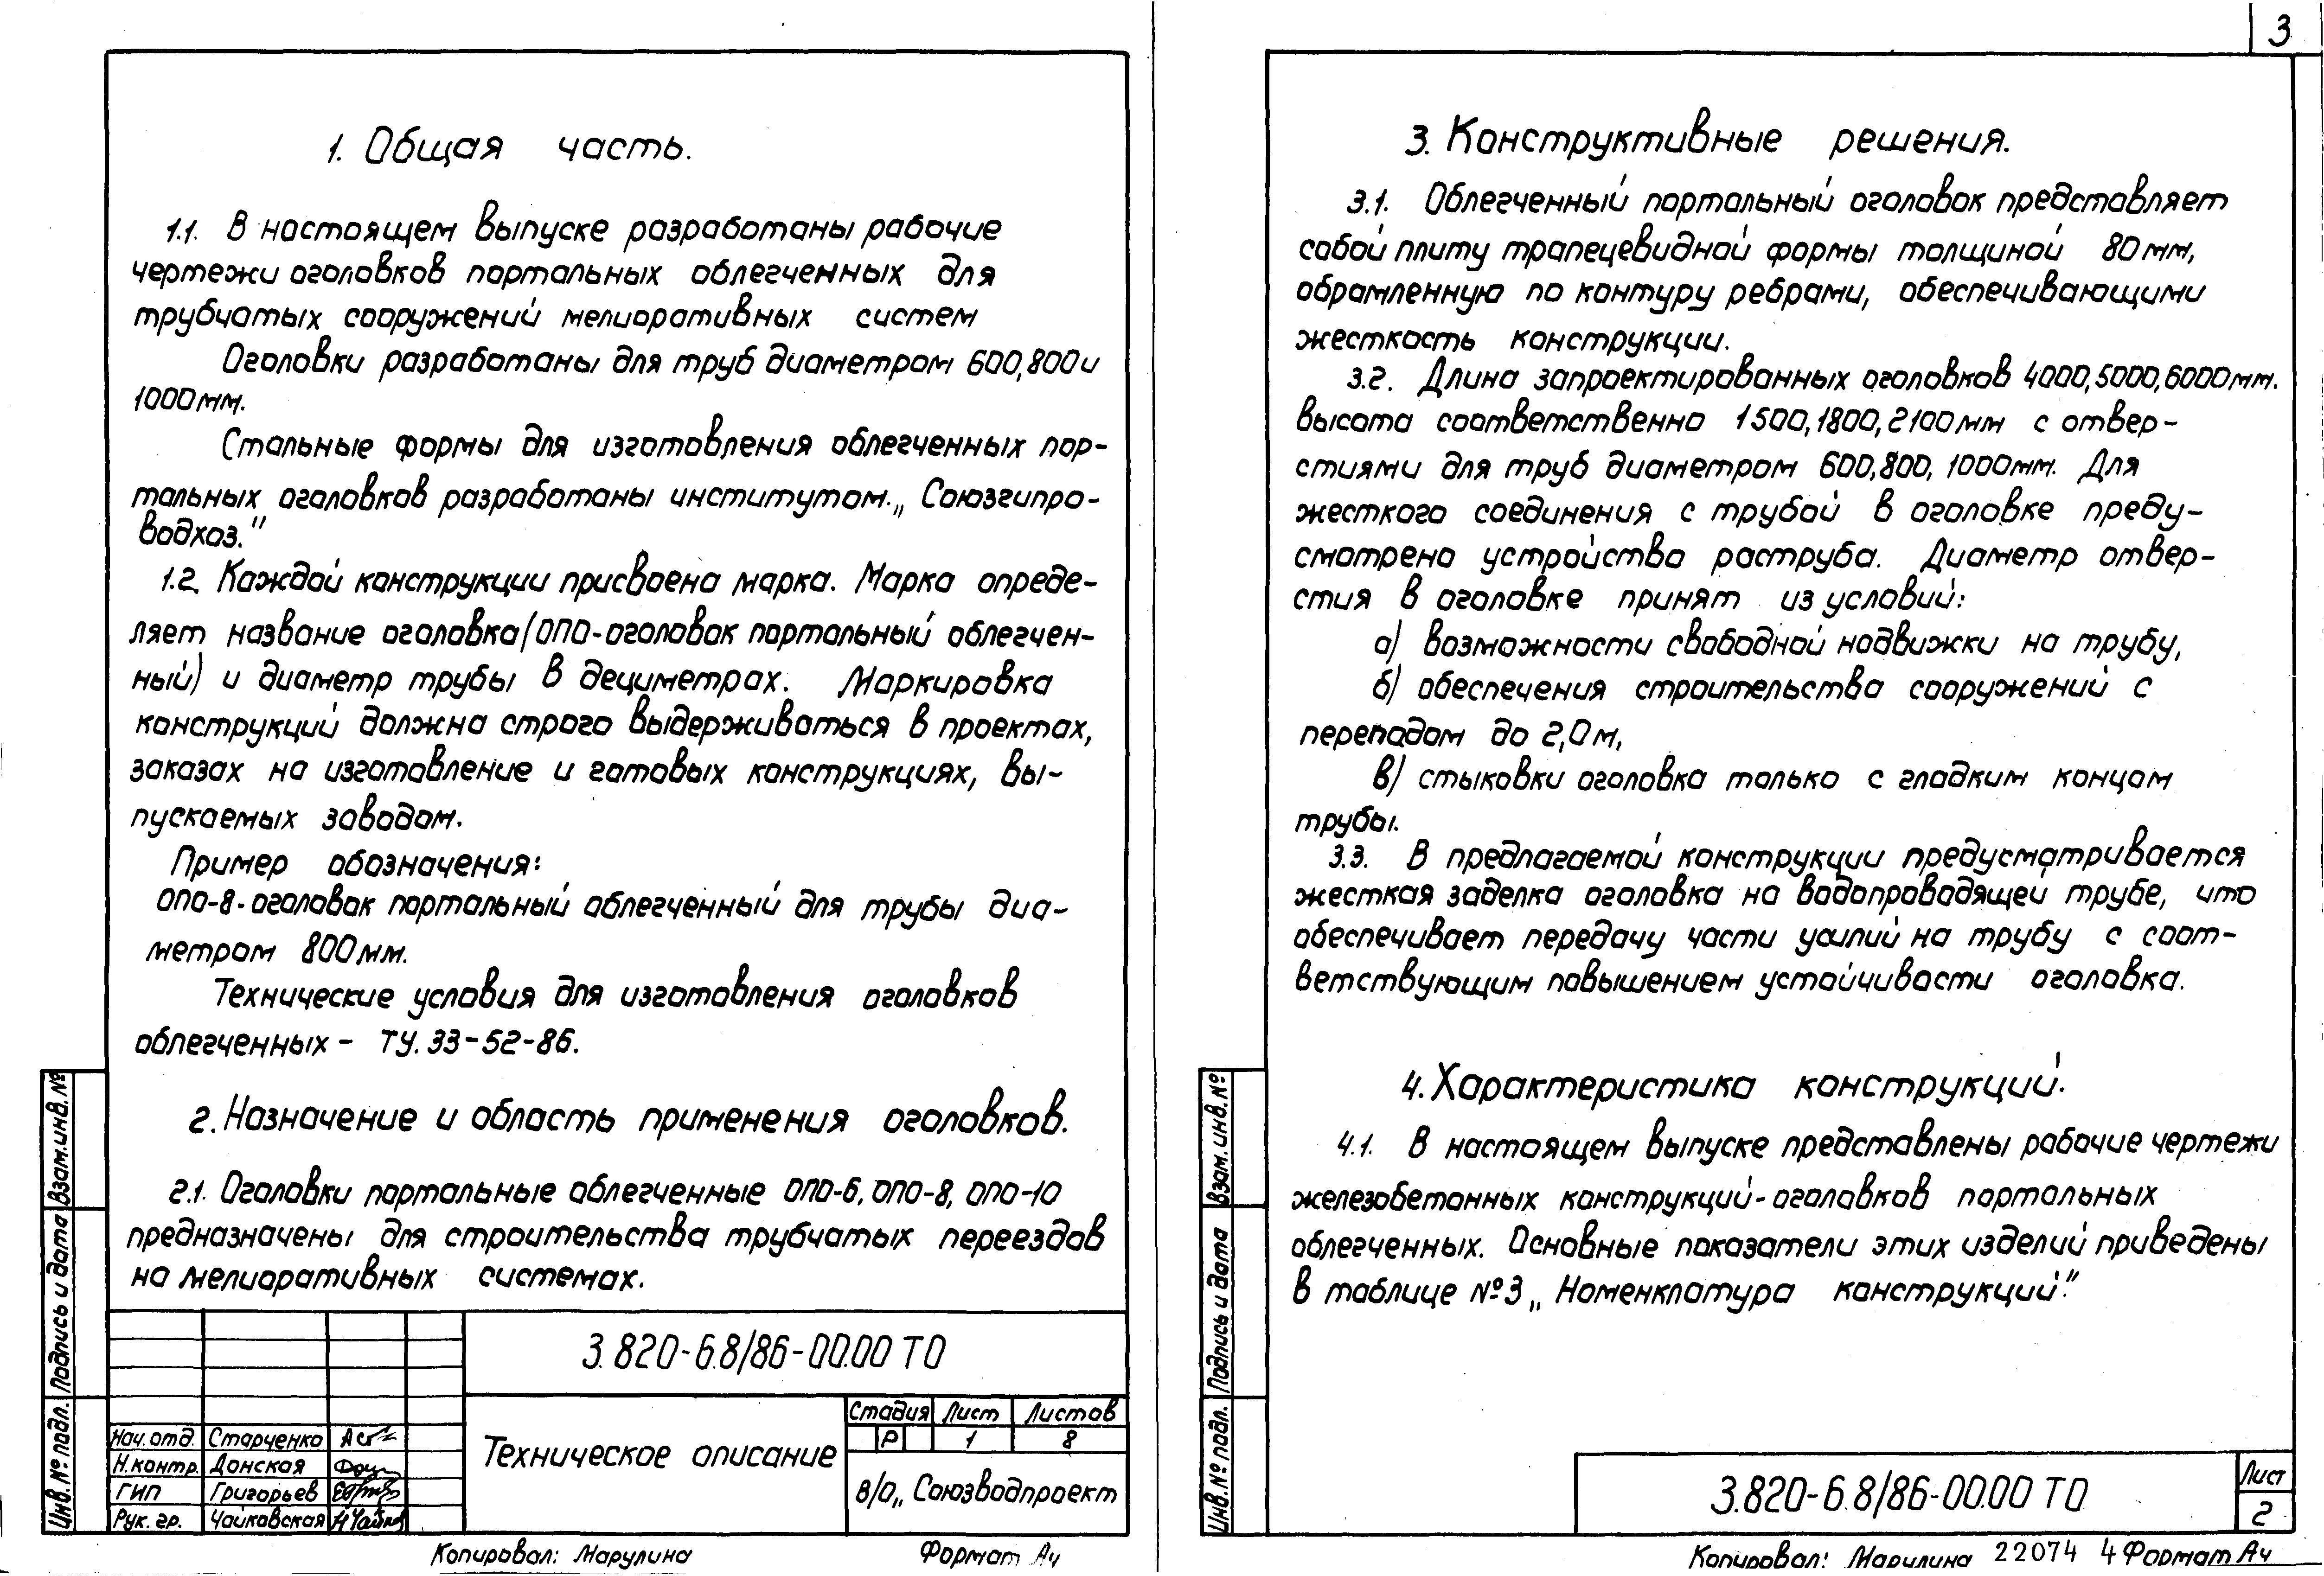 1. Общая часть.
1.1. В настоящем выпуске разработаны рабочие
чертежи оголовков портальных облегченных для
трубчатых сооружений мелиоративных систем
Оголовки разработаны для труб диаметром 600,800 и
1000мм.
Стальные формы для изготовления облегченных пор-
тальных оголовков разработаны институтом „Союзгипро-
водхоз."
1.2. Каждой конструкции присвоена марка. Марка опреде-
ляет название оголовка/ОПО-оголовок портальный облегчен-
ный) и диаметр трубы в дециметрах. Маркировка
конструкций должна строго выдерживаться в проектах,
заказах на изготовление и готовых конструкциях, вы-
пускаемых заводом.
Пример обозначения:
ОПО-8-оголовок портальный облегченный для трубы диа-
метром 800мм.
Технические условия для изготовления оголовков
облегченных - ТУ.33-52-86.
2. Назначение и область применения оголовков.
2.1. Оголовки портальные облегченные ОПО-6, ОПО-8, ОПО-10
предназначены для строительства трубчатых переездов
на мелиоративных системах.
3.820-6.8/86-00.00 ТО
Техническое описание
Стадия Лист Листов
Р 1 8
В/О „Союзводпроект
Нач. отд. Старченко
Н.контр. Донская
ГИП Григорьев
Рук. гр. Чайковская
Инв.№ подл. Подпись и дата Взам.инв.№
Копировал: Марулина Формат А4
3
3. Конструктивные решения.
3.1. Облегченный портальный оголовок представляет
собой плиту трапецевидной формы толщиной 80мм,
обрамленную по контуру ребрами, обеспечивающими
жесткость конструкции.
3.2. Длина запроектированных оголовков 4000, 5000, 6000мм.
высота соответственно 1500, 1800, 2100мм с отвер-
стиями для труб диаметром 600,800, 1000мм. Для
жесткого соединения с трубой в оголовке преду-
смотрено устройство раструба. Диаметр отвер-
стия в оголовке принят из условий:
а) возможности свободной надвижки на трубу,
б) обеспечения строительства сооружений с
перепадом до 2,0м,
в) стыковки оголовка только с гладким концом
трубы.
3.3. В предлагаемой конструкции предусматривается
жесткая заделка оголовка на водопроводящей трубе, что
обеспечивает передачу части усилий на трубу с соот-
ветствующим повышением устойчивости оголовка.
4. Характеристика конструкций.
4.1. В настоящем выпуске представлены рабочие чертежи
железобетонных конструкций-оголовков портальных
облегченных. Основные показатели этих изделий приведены
в таблице №3 „Номенклатура конструкций."
3.820-6.8/86-00.00 ТО
Лист
2
Инв.№ подл. Подпись и дата Взам.инв.№
Копировал: Марилина 22074 4 Формат А4